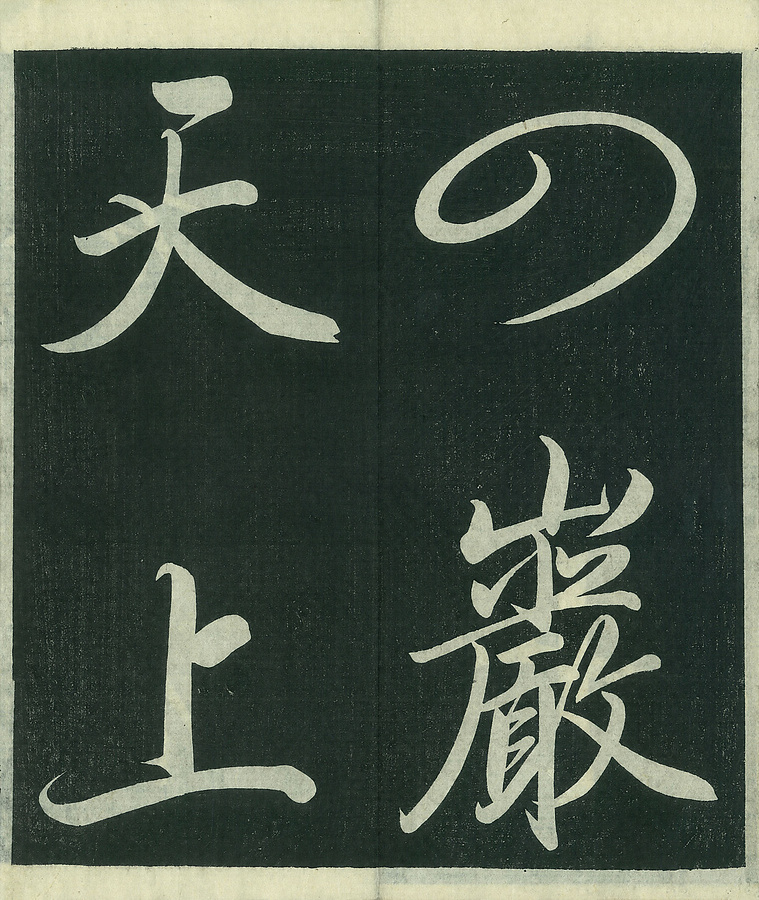 の巖
天上